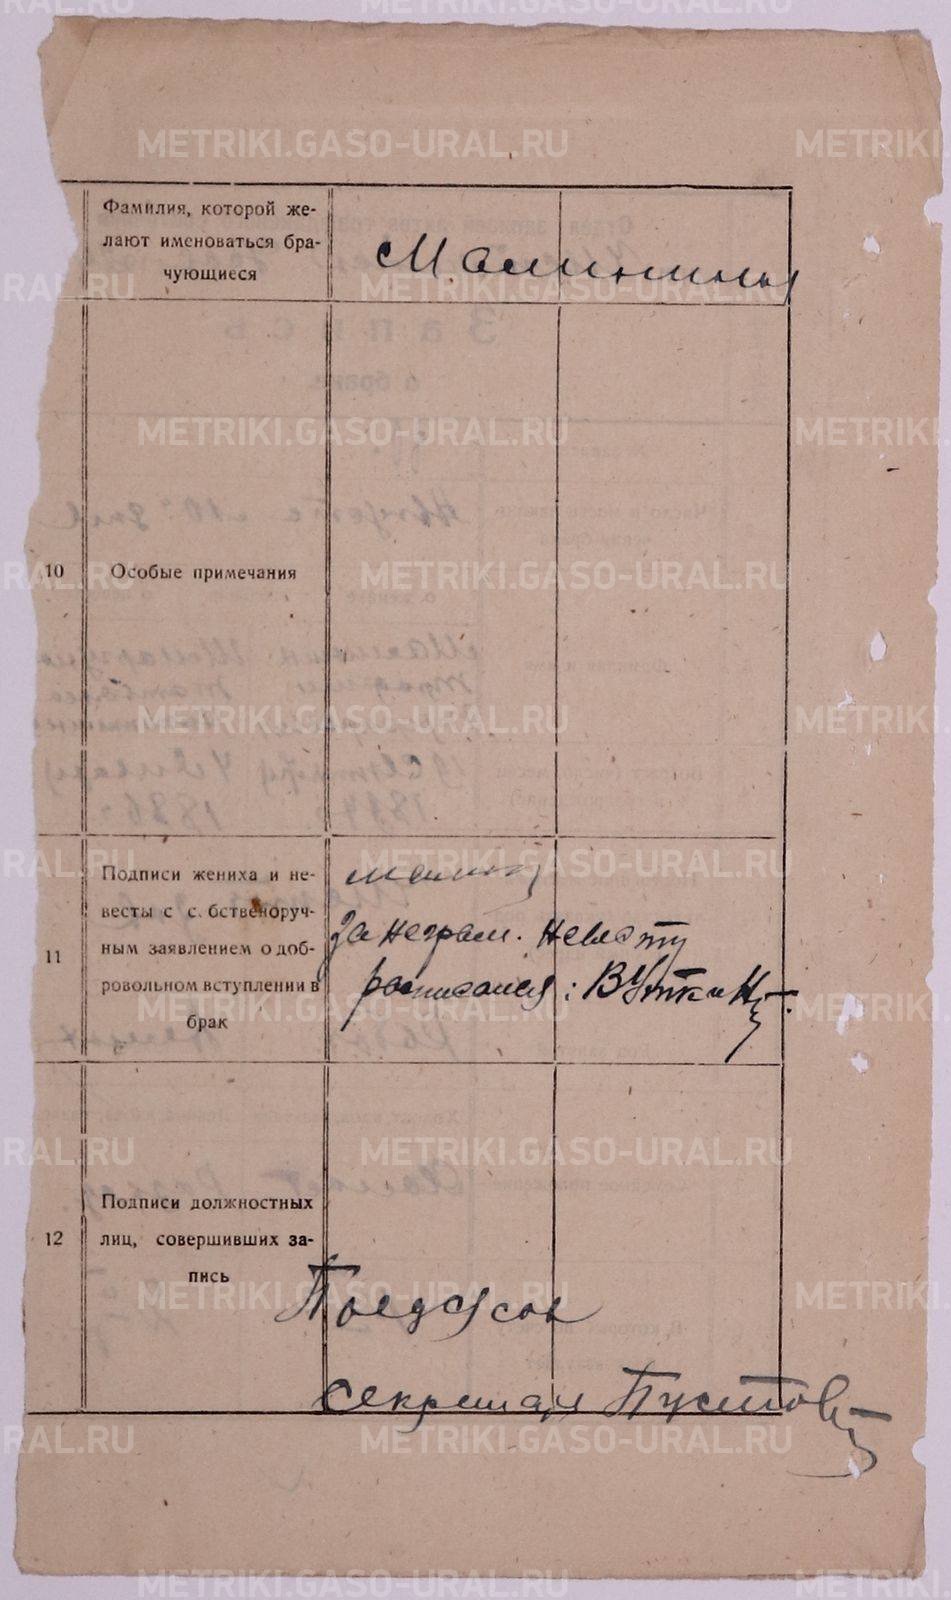 Фамилия, которой же-
лают именоваться бра-
чующиеся
Малинины
10
Особые примечания
11
Подписи жениха и не-
весты с с. бственоруч-
ным заявлением о доб-
ровольном вступлении в
брак
за неграм. невесту
расписался: ВУткин
12
Подписи должностных
лиц, совершивших за-
пись
секретарь Пустов
METRIKI.GASO-URAL.RU